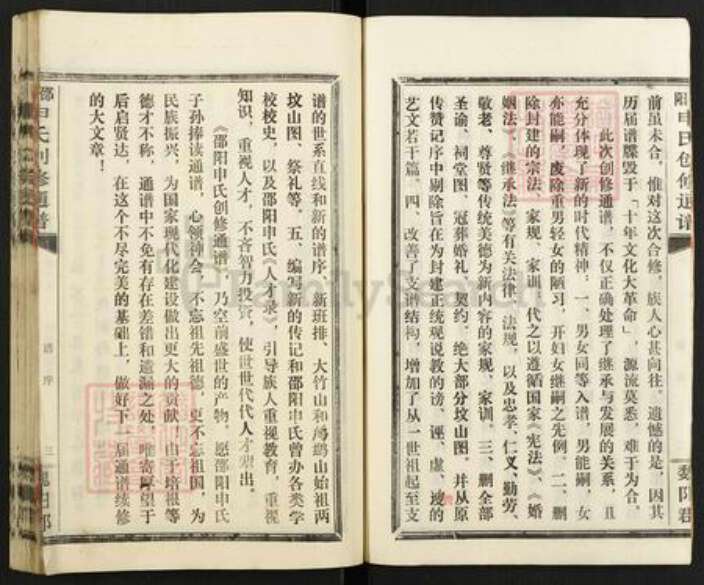 阳申氏创修通谱
魏阳君
前虽未合，惟对这次合修，族人心甚向往。遗憾的是，因其
历届谱牒毁于「十年文化大革命」，源流莫悉，难于为合。
此次创修通谱，不仅正确处理了继承与发展的关系，且
充分体现了新的时代精神：一、男女同等入谱，男能嗣，女
亦能嗣，废除重男轻女的陋习，开妇女继嗣之先例。二、删
除封建的宗法、家规、家训，代之以遵循国家《宪法》、《婚
姻法》、《继承法》等有关法律、法规，以及忠孝、仁义、勤劳、
敬老、尊贤等传统美德为新内容的家规、家训。三、删全部
圣谕、祠堂图、冠葬婚礼、契约、绝大部分坟山图，并从原
传赞记序中剔除旨在为封建正统观说教的谤、诬、虚、谀的
艺文若干篇。四、改善了支谱结构，增加了从一世祖起至支
谱的世系直线和新的谱序、新班排、大竹山和鸬鹚山始祖两
坟山图、祭礼等。五、编写新的传记和邵阳申氏曾办各类学
校校史，以及邵阳申氏《人才录》，引导族人重视教育，重视
知识，重视人才，不吝智力投资，使世世代代人才辈出。
《邵阳申氏创修通谱》，乃空前盛世的产物，愿邵阳申氏
子孙捧读通谱，心领神会，不忘祖先祖德，更不忘祖国，为
民族振兴，为国家现代化建设做出更大的贡献。由于培根等
德才不称，通谱中不免有存在差错和遗漏之处，唯寄厚望于
后启贤达，在这个不尽完美的基础上，做好下一届通谱续修
的大文章！
邵申氏创修通谱
谱序
三
魏阳郡
FamilySearch